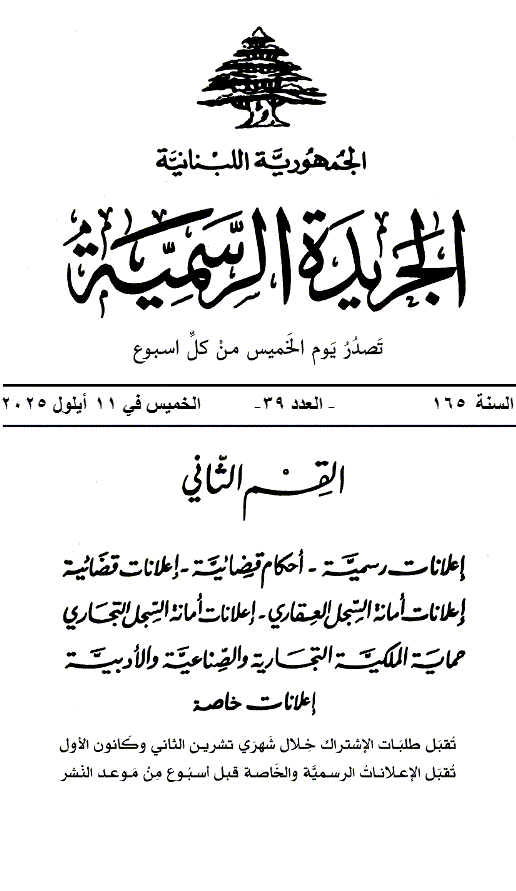 الجُمهُوريَّة اللبْنانيَّة
الجَريدَة الرسَّميَّة
تَصدُرُ يَوم الخَميس منْ كلِّ اسبوع
السنة ١٦٥ - العدد ٣٩- الخميس في ١١ أيلول ٢٠٢٥
القِسْم الثّاني
إعلانات رسميَّة - أحكام قضائيَّة - إعلانات قضائية
إعلانات أمانة السِّجل العقاري - إعلانات أمانة السِّجل التجاري
حماية الملكيَّة التجارية والصِّناعيَّة والأدبيَّة
إعلانات خاصة
تُقبَل طلبَات الإشتراك خِلال شَهرَي تشرين الثاني وكَانون الأول
تُقبَل الإعلاناتُ الرسميَّة والخَاصة قبل أسبُوع مِنْ مَوعد النَشر